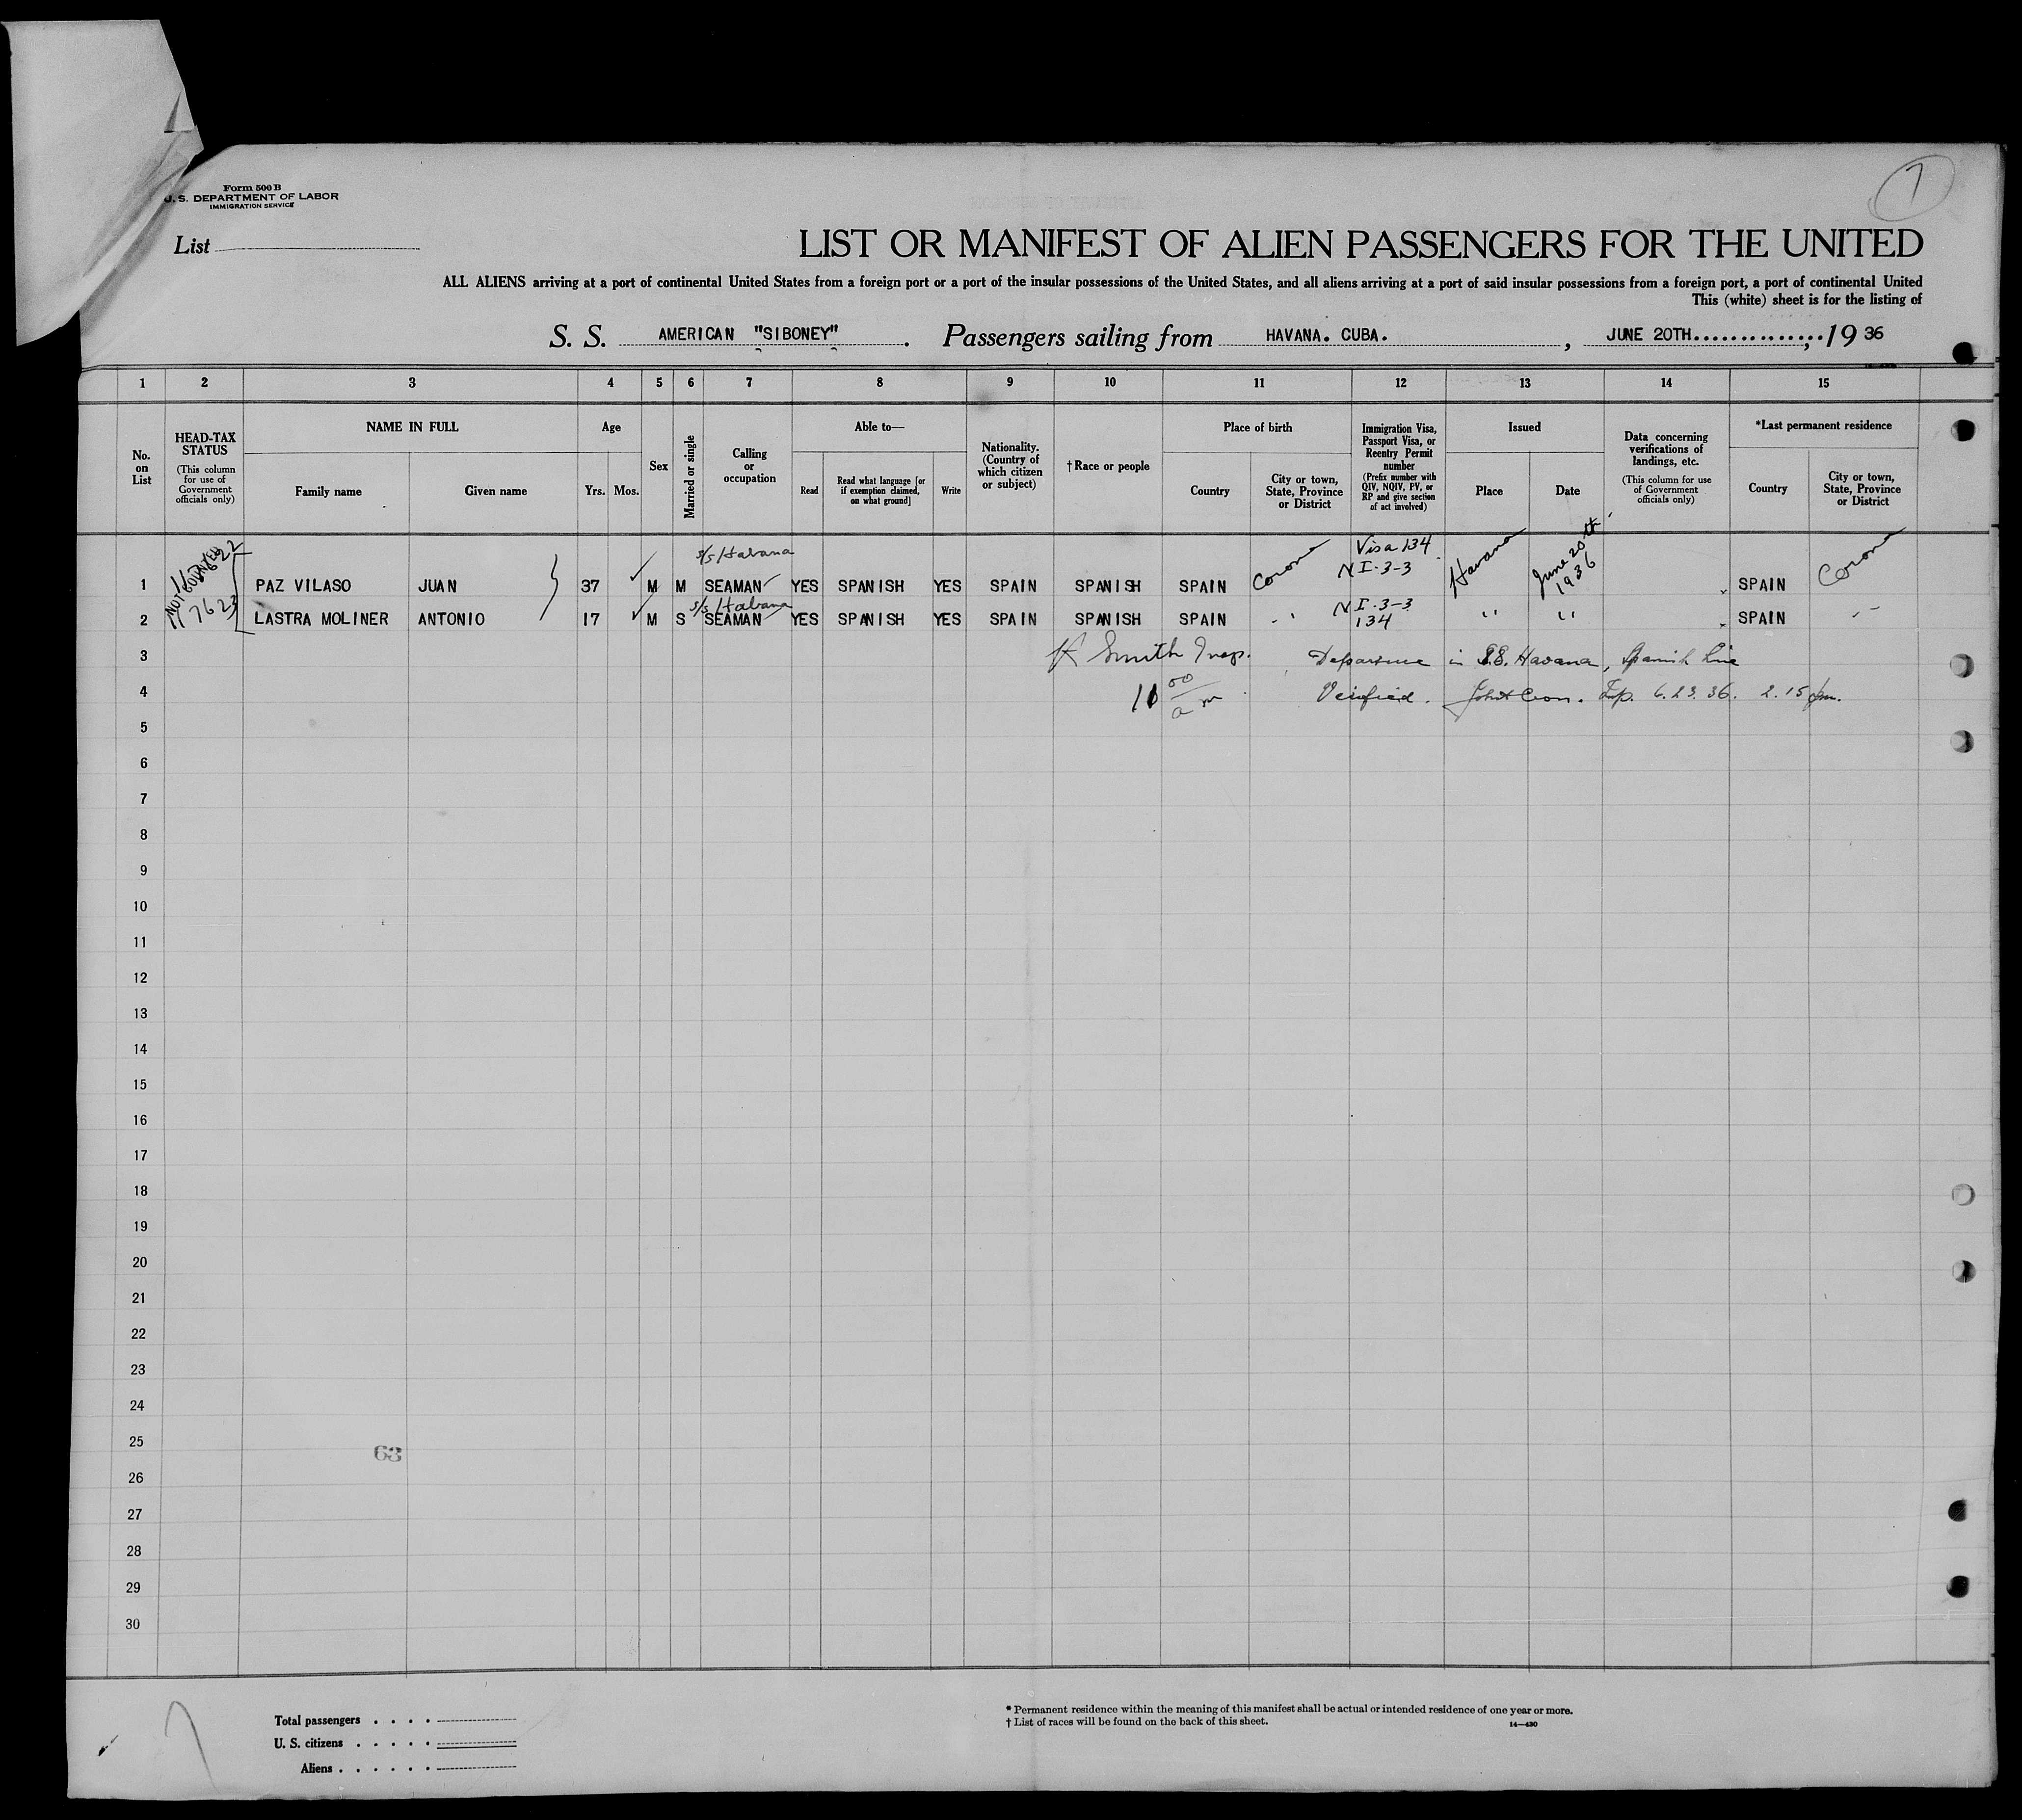 7
Form 500 B
U. S. DEPARTMENT OF LABOR
IMMIGRATION SERVICE
List
LIST OR MANIFEST OF ALIEN PASSENGERS FOR THE UNITED
ALL ALIENS arriving at a port of continental United States from a foreign port or a port of the insular possessions of the United States, and all aliens arriving at a port of said insular possessions from a foreign port, a port of continental United
This (white) sheet is for the listing of
S. S. AMERICAN "SIBONEY". Passengers sailing from HAVANA. CUBA., JUNE 20TH.............., 19 36
1 2 3 4 5 6 7 8 9 10 11 12 13 14 15
No. on List
HEAD-TAX STATUS
(This column for use of Government officials only)
NAME IN FULL
Family name
Given name
Age
Yrs. Mos.
Sex
Married or single
Calling or occupation
Able to—
Read
Read what language [or if exemption claimed, on what ground]
Write
Nationality. (Country of which citizen or subject)
†Race or people
Place of birth
Country
City or town, State, Province or District
Immigration Visa, Passport Visa, or Reentry Permit number
(Prefix number with QIV, NQIV, PV, or RP and give section of act involved)
Issued
Place
Date
Data concerning verifications of landings, etc.
(This column for use of Government officials only)
*Last permanent residence
Country
City or town, State, Province or District
NOT COUNTED
s/s Habana Visa 134
1 PAZ VILASO JUAN 37 M M SEAMAN YES SPANISH YES SPAIN SPANISH SPAIN Corona NI-3-3 Havana June 20th 1936 SPAIN Corona
s/s Habana NI-3-3
2 LASTRA MOLINER ANTONIO 17 M S SEAMAN YES SPANISH YES SPAIN SPANISH SPAIN " 134 " " SPAIN "
3 Smith Insp. Departure in S.S. Havana, Spanish Line
4 11 00 am Verified. Insp. 6.23.36. 2.15 pm.
5
6
7
8
9
10
11
12
13
14
15
16
17
18
19
20
21
22
23
24
25
63
26
27
28
29
30
Total passengers . . . .
U. S. citizens . . . . .
Aliens . . . . . .
* Permanent residence within the meaning of this manifest shall be actual or intended residence of one year or more.
† List of races will be found on the back of this sheet.
14—430